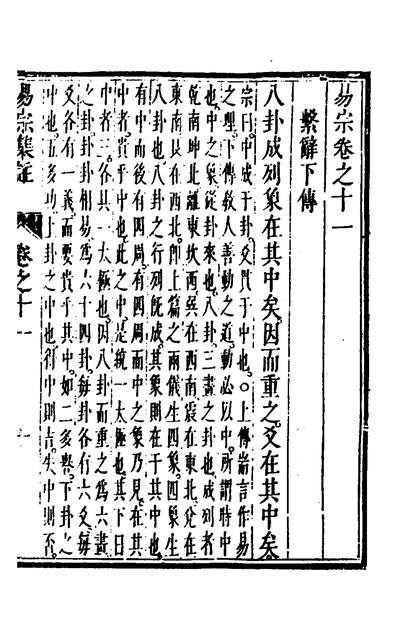 易宗卷之十一
繫辭下傳
八卦成列象在其中矣因而重之爻在其中矣
宗曰中成于卦爻貫于中也○上傳耑言作易
之理下傳教人善動之道動必以中所謂時中
也中之象從卦來也八卦三畫之卦也成列者
乾南坤北離東坎西巽在西南震在東北兌在
東南艮在西北卽上篇之兩儀生四象四象生
八卦也八卦之行列旣成其象則在于其中也
有中而後有四周有四周而中之象乃見在其
中者貴乎中也此之中是統一太極也其下曰
中者三各具一太極也因八卦而重之爲六畫
之卦卦卦相易爲六十四卦每卦各有六爻每
爻各有一義而要貴乎其中如二多譽下卦之
中也五多功上卦之中也得中則吉失中則否
易宗集註
卷之十一
一